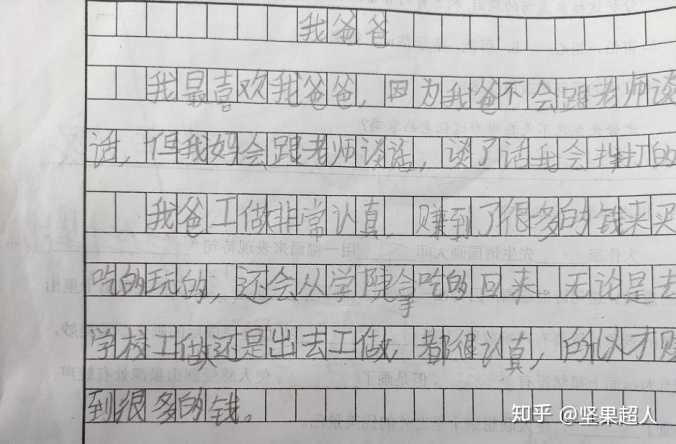 我爸爸
我最喜欢我爸爸，因为我爸不会跟老师谈
话，但我妈会跟老师谈话，谈了话我会挨打的
我爸工做非常认真，赚到了很多的钱来买
吃的玩的，还会从学院拿吃的回来。无论是去
学校工做还是出去工做，都很认真，的以才赚
到很多的钱。
知乎 @坚果超人